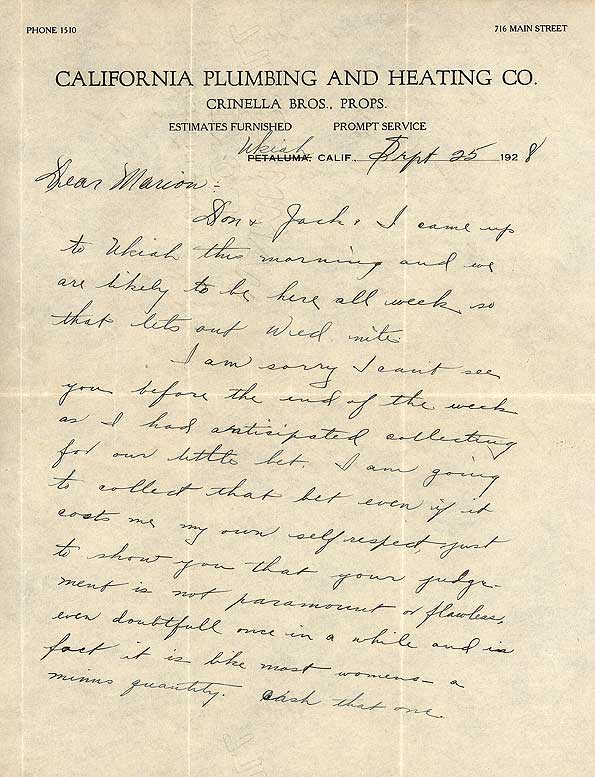 PHONE 1510
716 MAIN STREET
CALIFORNIA PLUMBING AND HEATING CO.
CRINELLA BROS., PROPS.
ESTIMATES FURNISHED PROMPT SERVICE
Ukiah
PETALUMA, CALIF., Sept 25 1928
Dear Marion:-
Don & Jack & I came up
to Ukiah this morning and we
are likely to be here all week so
that lets out Wed nite.
I am sorry I cant see
you before the end of the week
as I had anticipated collecting
for our little bet. I am going
to collect that bet even if it
costs me my own self respect, just
to show you that your judge-
ment is not paramount or flawless,
even doubtfull once in a while and in
fact it is like most womens - a
minus quantity. Cash that one.